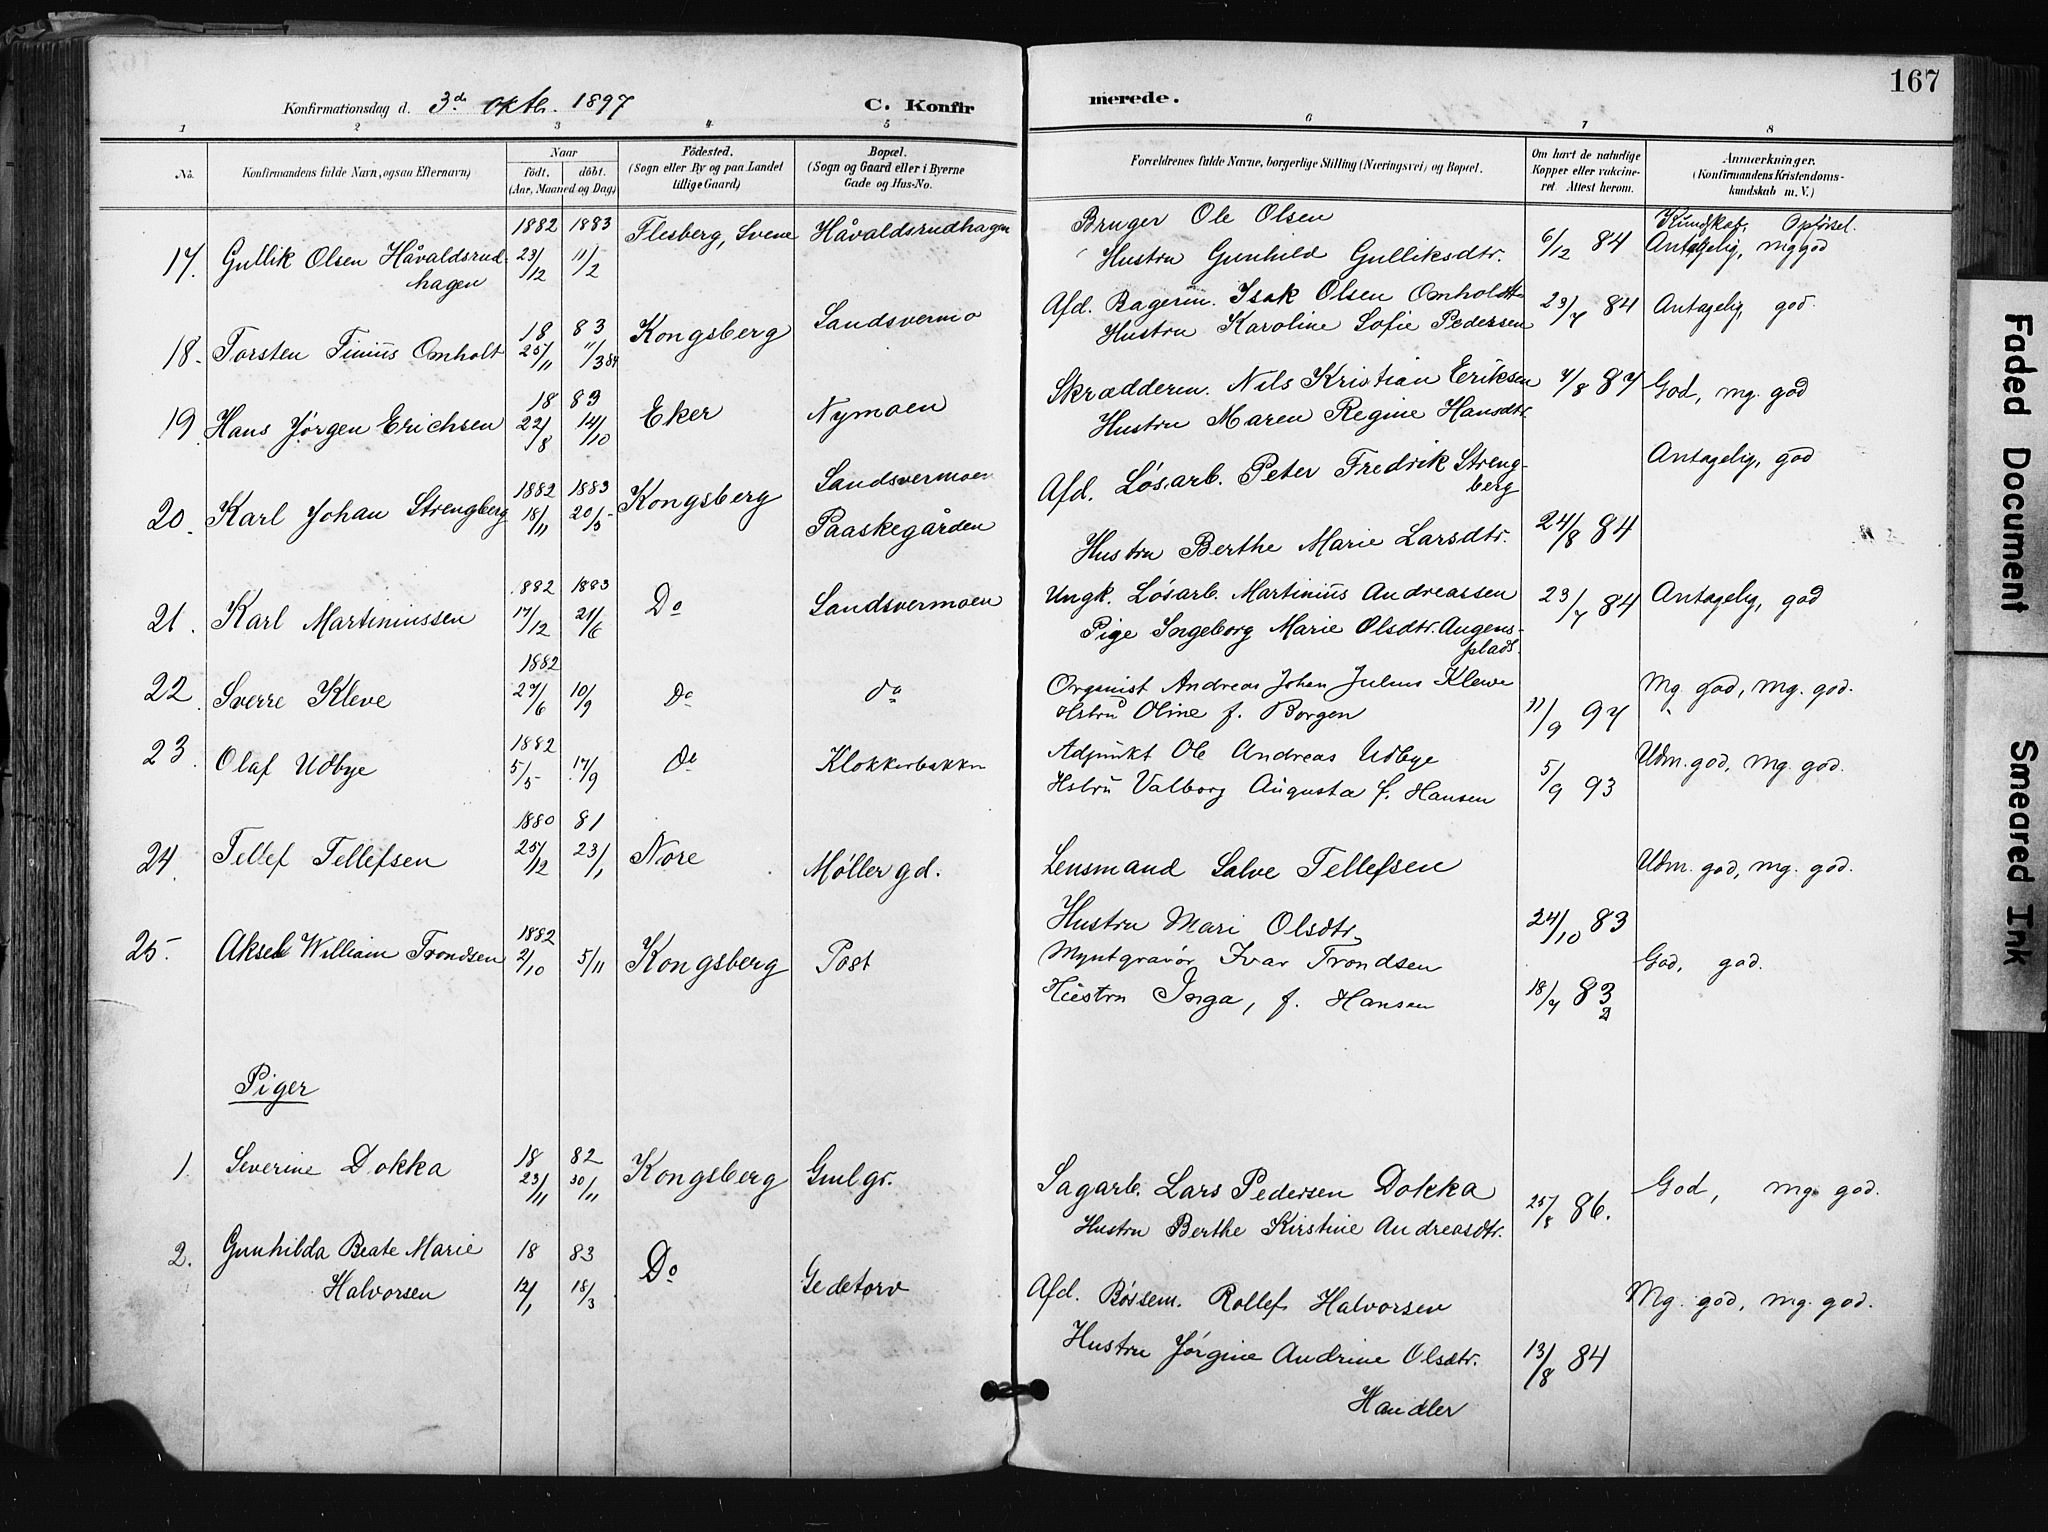 167
Konfirmationsdag d. 3d oktb. 1897 C. Konfir merede.
1 2 3 4 5 6 7 8
No. Konfirmandens fulde Navn, ogsaa Efternavn) Naar födt. döbt. (Aar, Maaned og Dag) Födested. (Sogn eller By og paa Landet tillige Gaard) Bopæl. (Sogn og Gaard eller i Byerne Gade og Hus-No. Forældrenes fulde Navne, borgerlige Stilling (Næringsvei) og Bopæl. Om havt de naturlige Kopper eller vakcine- ret Attest herom. Anmærkninger. (Konfirmandens Kristendoms- kundskab m. V.)
Kundskab, Opførsel.
1882 1883 Flesberg, Svene Håvaldsrudhagen Bruger Ole Olsen
17. Gullik Olsen Håvaldsrud- 23/12 11/2 Hustru Gunhild Gulliksdtr. 6/12 84 Antagelig, mg god
hagen
18 83 Kongsberg Sandsvermo Afd. Bagerm. Isak Olsen Omholdt 23/7 84 Antagelig, god.
18. Torsten Tinius Omholt 25/11 11/3 84 Hustru Karoline Sofie Pedersen
18 83 Eker Nymoen Skrædderm. Nils Kristian Eriksen 7/8 87 God, mg. god
19. Hans Jørgen Erichsen 22/8 14/10 Hustru Maren Regine Hansdtr
1882 1883 Kongsberg Sandsvermoen Afd. Løsarb. Peter Fredrik Streng- Antagelig, god
berg
20. Karl Johan Strengberg 18/11 20/5 Paaskegården
Hustru Berthe Marie Larsdtr. 24/8 84
882 1883 Do Sandsvermoen Ungk. Løsarb. Martinius Andreassen 23/7 84 Antagelig, god
21. Karl Martiniussen 17/12 21/6 Pige Ingeborg Marie Olsdtr. Augens-
plads.
1882
22. Sverre Kleve 27/6 10/9 Do do Organist Andreas Johan Julius Klewe Mg. god, mg. god.
Hstru Oline f. Borgen 11/9 97
1882
23. Olaf Udbye 5/5 17/9 do Klokkerbakken Adjunkt Ole Andreas Udbye Udm. god, mg. god.
Hstru Valborg Augusta f. Hansen 5/9 93
1880 81
24. Tellef Tellefsen 25/12 23/1 Nore Møllergd. Lensmand Salve Tellefsen Udm. god, mg. god.
Hustru Mari Olsdtr 24/10 83
1882
25. Aksel William Trondsen 2/10 5/11 Kongsberg Post Myntgravør Ivar Trondsen God, god.
Hustru Inga, f. Hansen 18/7 83
2
Piger
18 82
1. Severine Dokka 23/11 30/11 Kongsberg Gmlgr. Sagarb. Lars Pedersen Dokka 25/8 86. God, mg. god.
Hustru Berthe Kirstine Andreasdtr.
2. Gunhilda Beate Marie 18 83 Do Gedetorv Afd. Bøssem. Rollef Halvorsen Mg. god, mg. god.
Halvorsen 12/1 18/3
Hustru Jørgine Andrine Olsdtr. 13/8 84
Handler
Faded Document
Smeared Ink